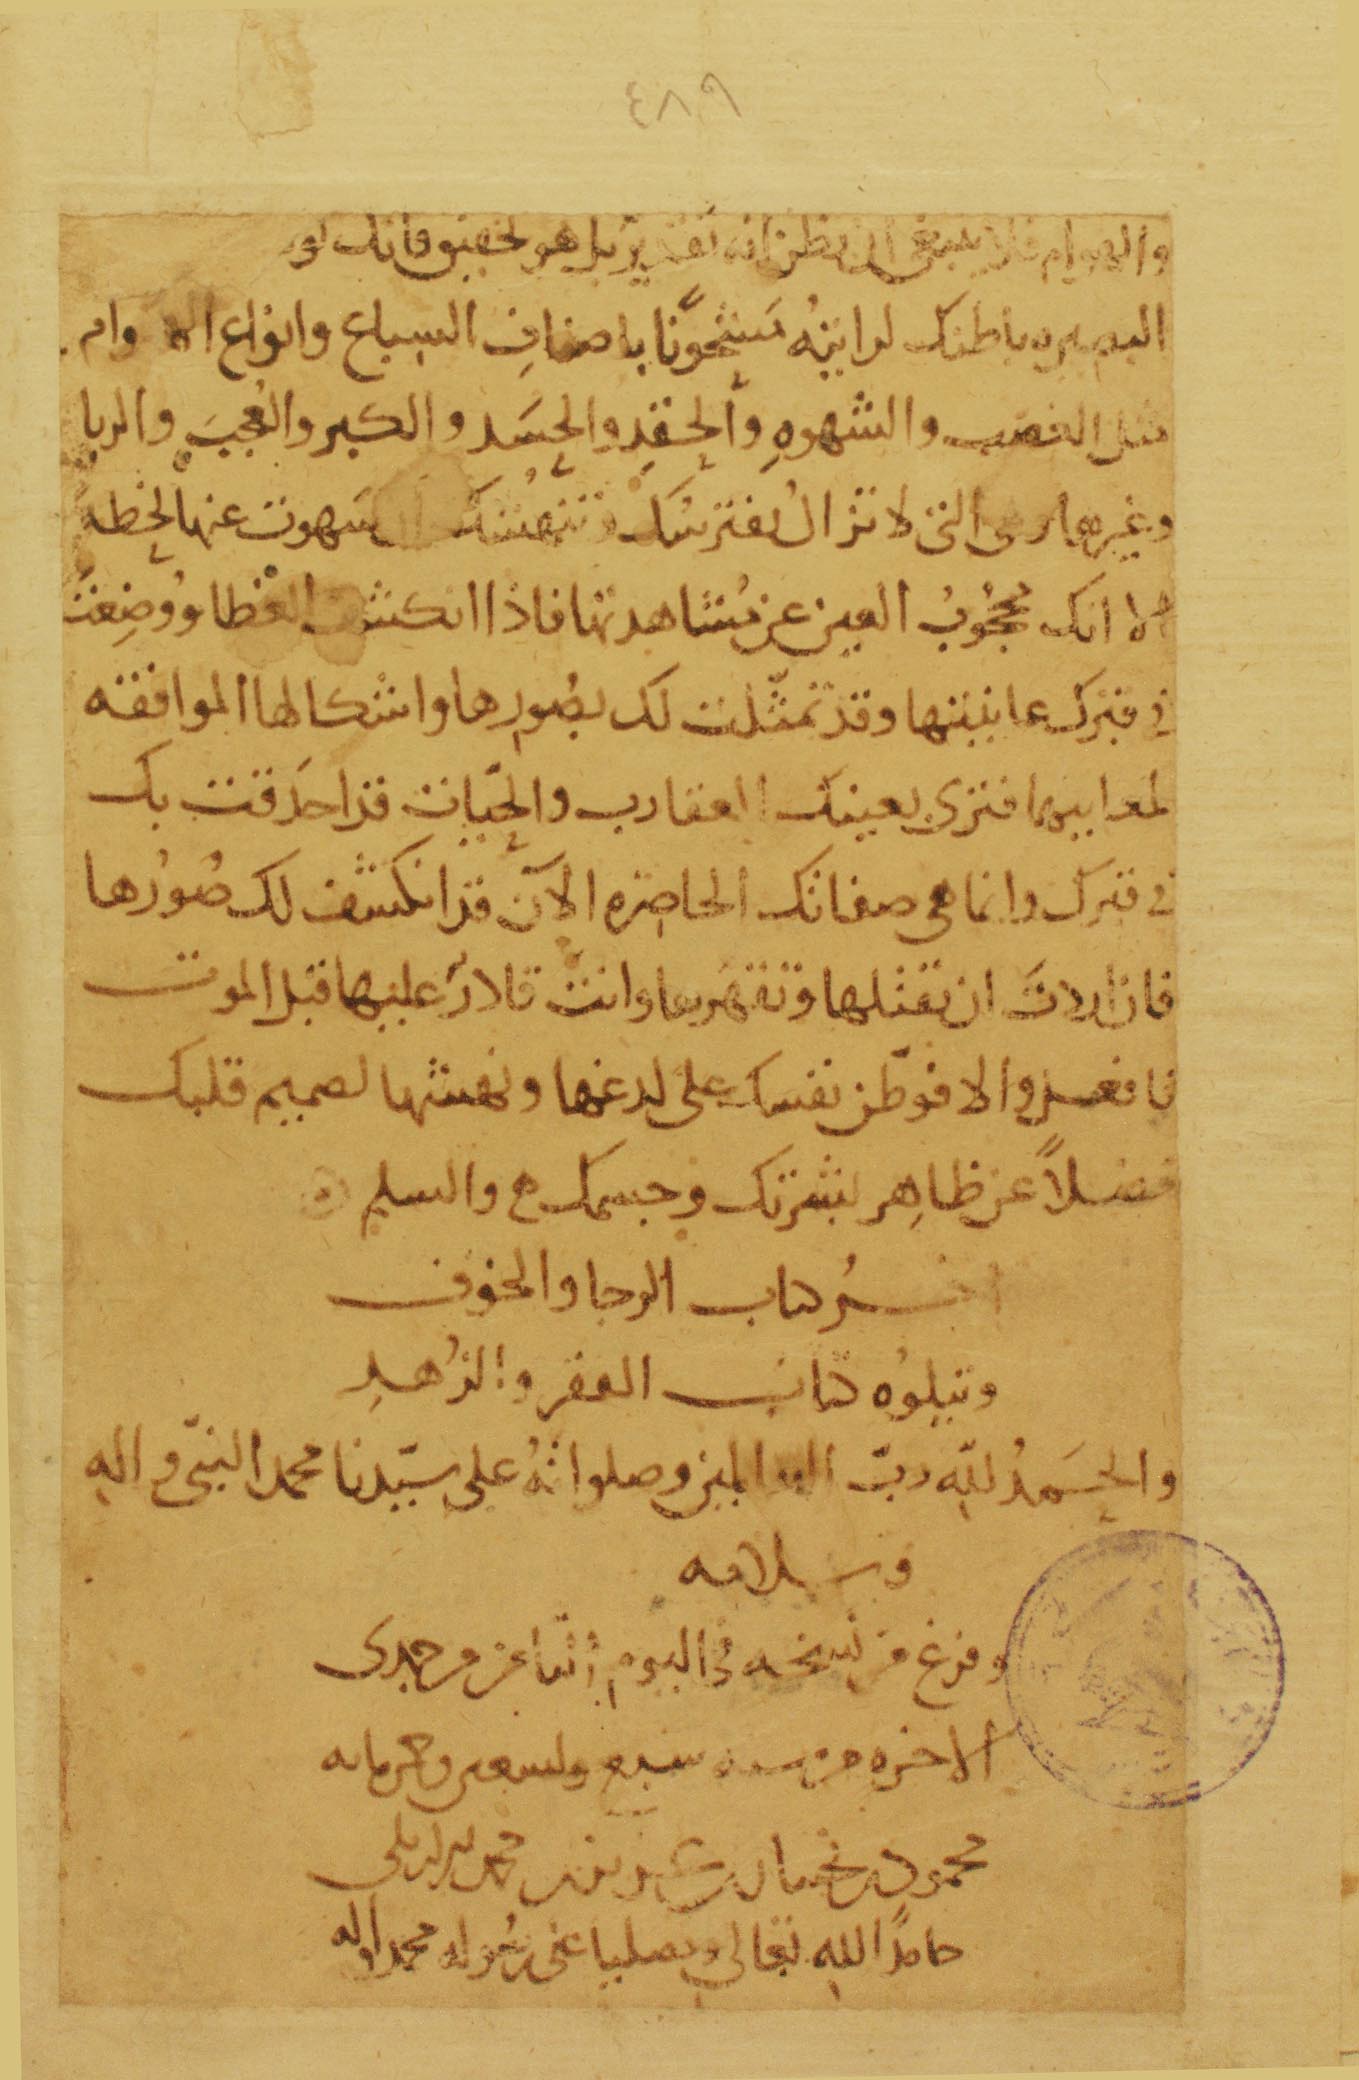 ٤٨٩
والهوام فلا ينبغي ان تظن انه تقدير بل هو تحقيق فانك لو
البصيره باطنك لرايته مَشْحُونًا باصنافِ السباع وانواع الهوام
مثل الغضب والشهوهِ والحِقدِ والحسَد والكبر والعُجبَ والريا
وغيرها وهي التي لا تزالُ تفترسُك وتنهشك ان سَهوت عنها لحظه
الا انك محجُوبُ العين عن مُشاهدتها فاذا انكشف الغطا ووُضِعتَ
في قبرك عاينتها وقد تمثّلت لك بصُورها واشكالها الموافقه
لمعانيها فترى بعينك العقارب والحيّات قد احدقت بك
في قبرك وانما هي صفاتك الحاضره الآن قد انكشف لك صُورُها
فان اردتَ ان تقتلها وتقهرها وانتَ قادرٌ عليها قبل الموت
فافعل والا فوطّن نفسك على لدغها ونهشها لصميم قلبك
فضلاً عن ظاهِر بشرتك وجسمك والسلم
اخرُ كتاب الرجا والخوف
ويتلوُه كتاب الفقر والزُهدِ
والحَمدُ للّه ربّ العالمين وصلواتهُ على سيّدنا محمد النبيّ واله
وسلامه
وفرغ من نسخه في اليوم الثامن من جمدى
الاخره من سنه سبع وتسعين وخمسمايه
محمود بن
حامدًا الله تعالى ومصليا على رسُوله محمد واله